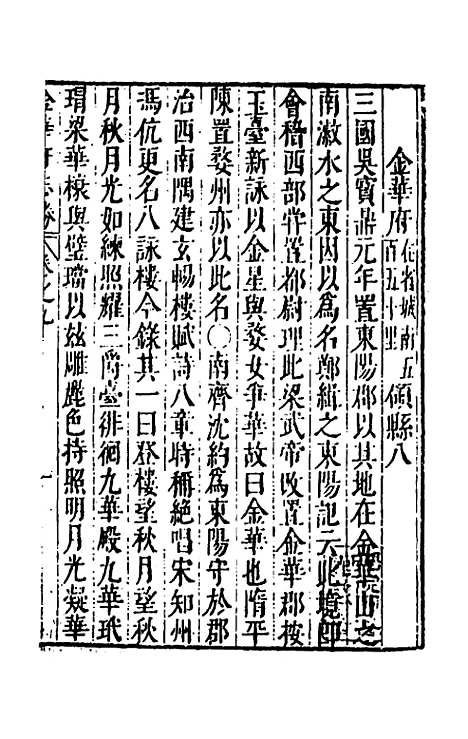 金華府在省城南五百五十里領縣八
三國吳寶鼎元年置東陽郡以其地在金華山之
南瀫水之東因以為名鄭緝之東陽記云此境即
會稽西部嘗置都尉理此梁武帝改置金華郡按
玉臺新詠以金星與婺女爭華故曰金華也隋平
陳置婺州亦以此名○南齊沈約為東陽守於郡
治西南隅建玄暢樓賦詩八章時稱絕唱宋知州
馮伉更名八詠樓今錄其一曰登樓望秋月望秋
月秋月光如練照耀三爵臺徘徊九華殿九華玳
瑁梁華榱與璧璫以玆雕麗色持照明月光凝華
金華府 卷之九